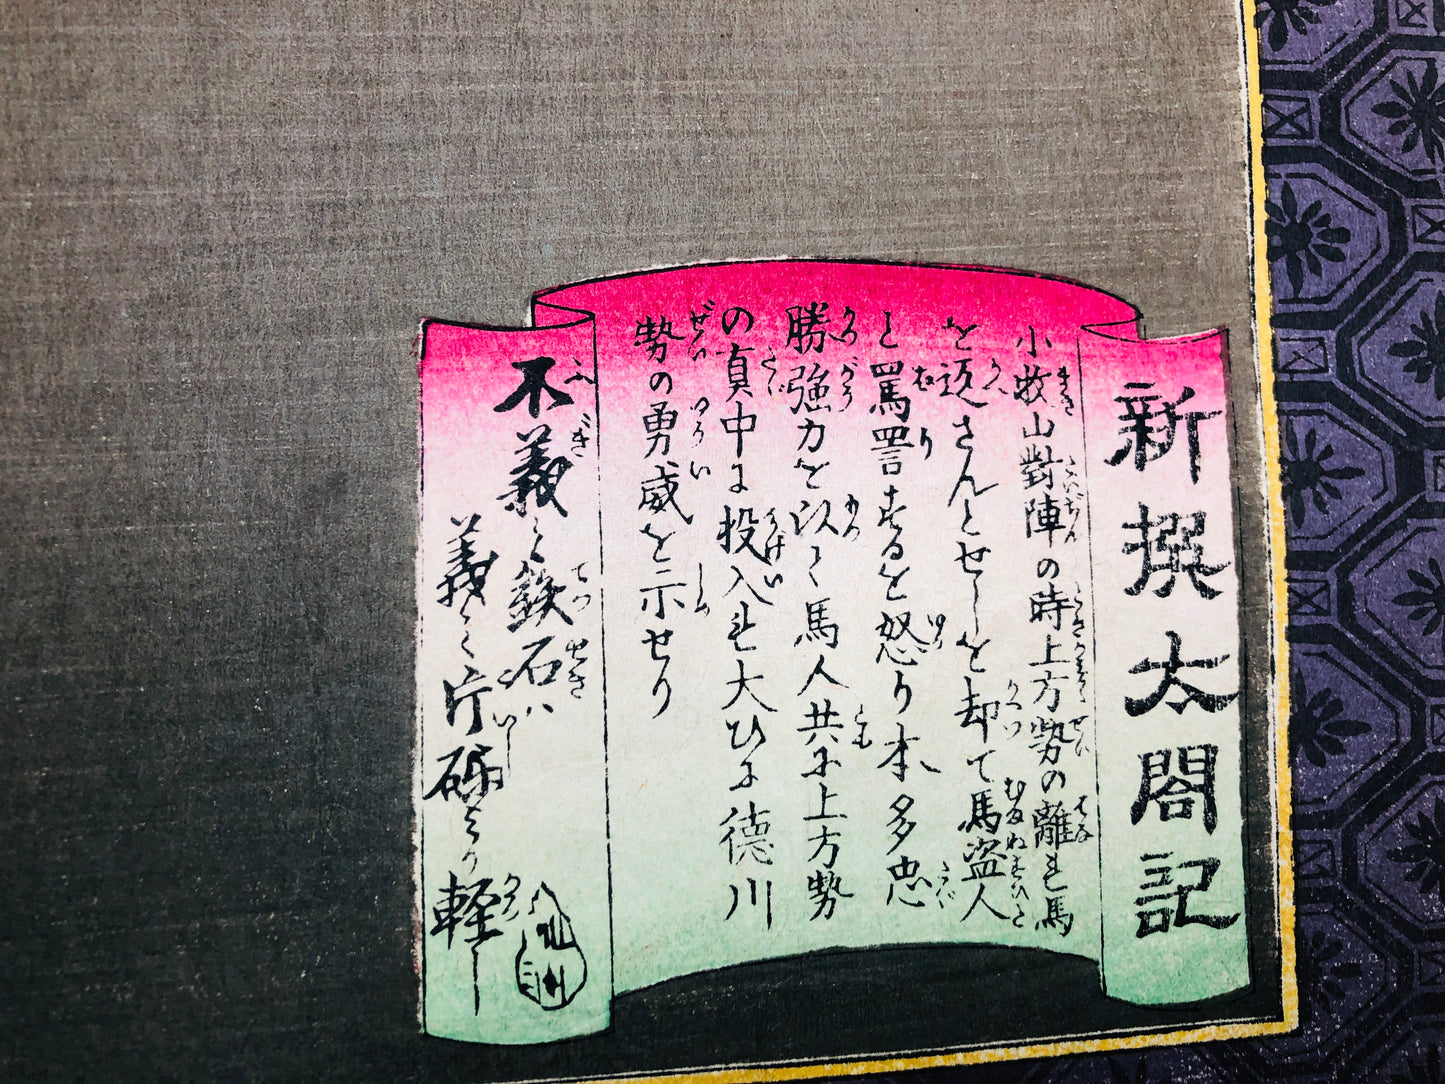 新撰太閤記
小牧山對陣の時上方勢の離れ馬
を返さんとせしを却て馬盗人
と罵詈するを怒り本多忠
勝強力を以て馬人共に上方勢
の真中に投入れ大ひに徳川
勢の勇威を示せり
不義之鉄石ハ
義之片礫より軽し